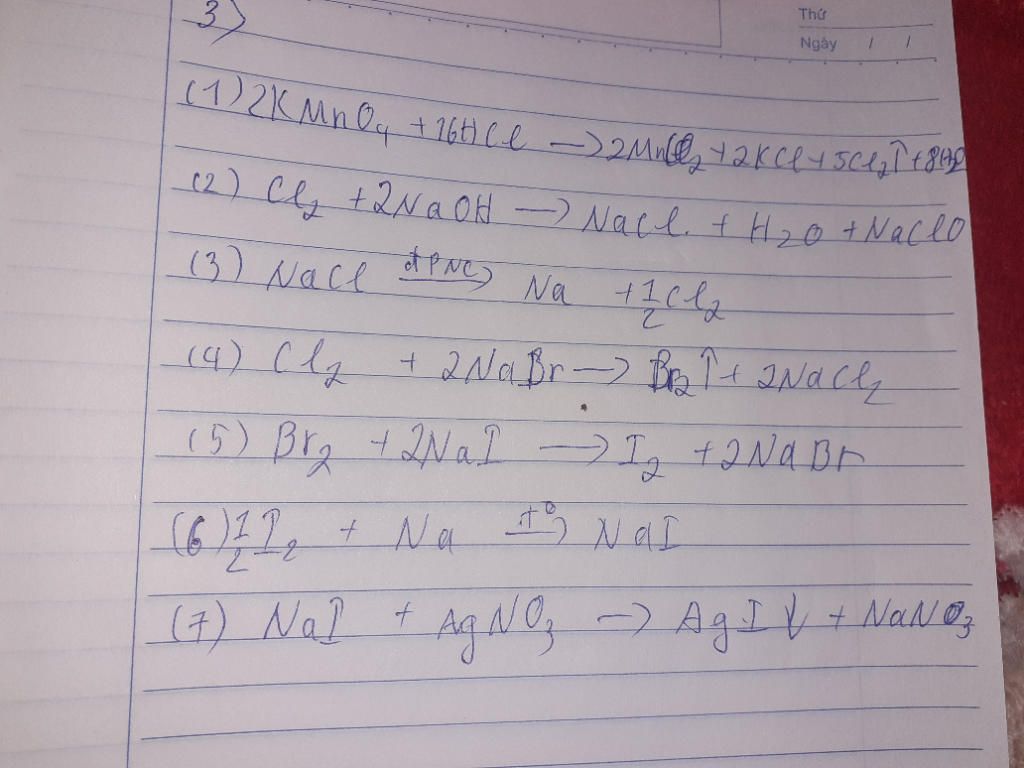 Thứ
Ngày / /
3)
(1) 2KMnO₄ + 16HCl → 2MnCl₂ + 2KCl + 5Cl₂↑ + 8H₂O
(2) Cl₂ + 2NaOH → NaCl + H₂O + NaClO
(3) NaCl đPNC→ Na + 1/2 Cl₂
(4) Cl₂ + 2NaBr → Br₂↑ + 2NaCl₂
(5) Br₂ + 2NaI → I₂ + 2NaBr
(6) 1/2 I₂ + Na t⁰→ NaI
(7) NaI + AgNO₃ → AgI↓ + NaNO₃